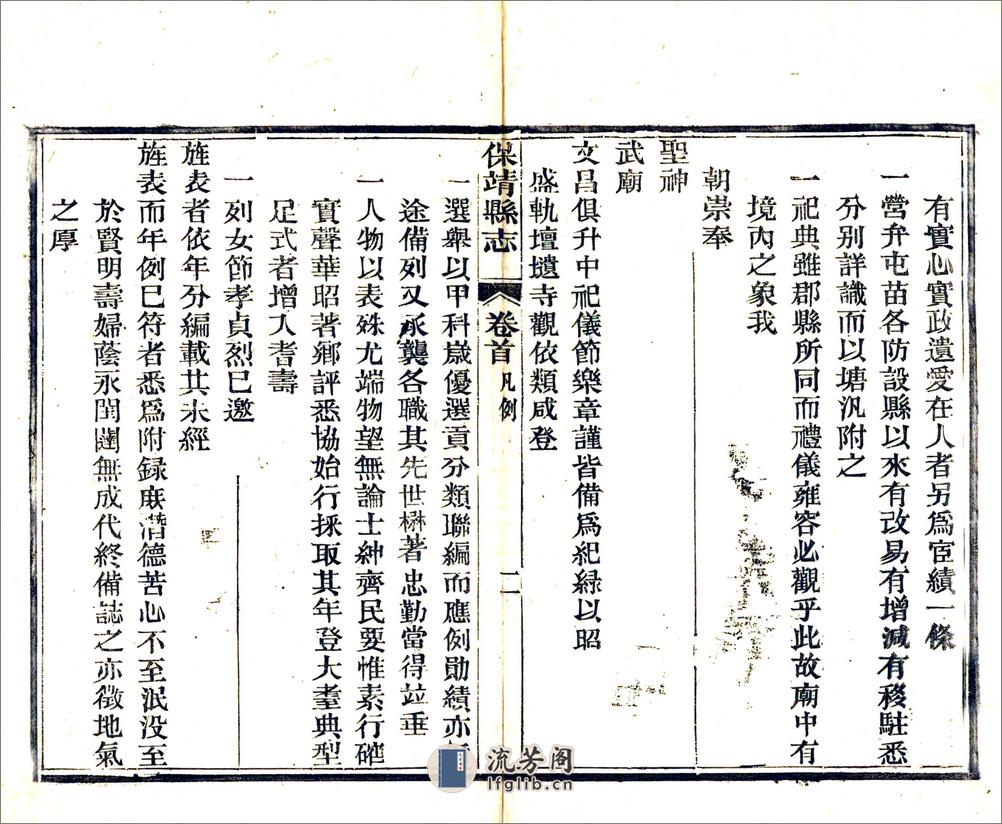 有實心實政遺愛在人者另爲宦績一條
一營弁屯苗各防設縣以來有改易有增減有移駐悉
分别詳識而以塘汛附之
一祀典雖郡縣所同而禮儀雍容必觀乎此故廟中有
境內之象我
朝崇奉
聖神
武廟
文昌俱升中祀儀節樂章謹皆備爲紀綠以昭
盛軌壇壝寺觀依類咸登
保靖縣志
卷首 凡例
二
一選舉以甲科歲優選貢分類聯編而應例勛績亦
途備列又承襲各職其先世懋著忠勤當得竝垂
一人物以表殊尤端物望無論士紳齊民要惟素行確
實聲華昭著鄉評悉協始行採取其年登大耋典型
足式者增入耆壽
一列女節孝貞烈已邀
旌表者依年分編載其未經
旌表而年例已符者悉爲附録庶潛德苦心不至泯没至
於賢明壽婦蔭永閨闥無成代終備誌之亦徵地氣
之厚
流芳阁
lfglib.cn